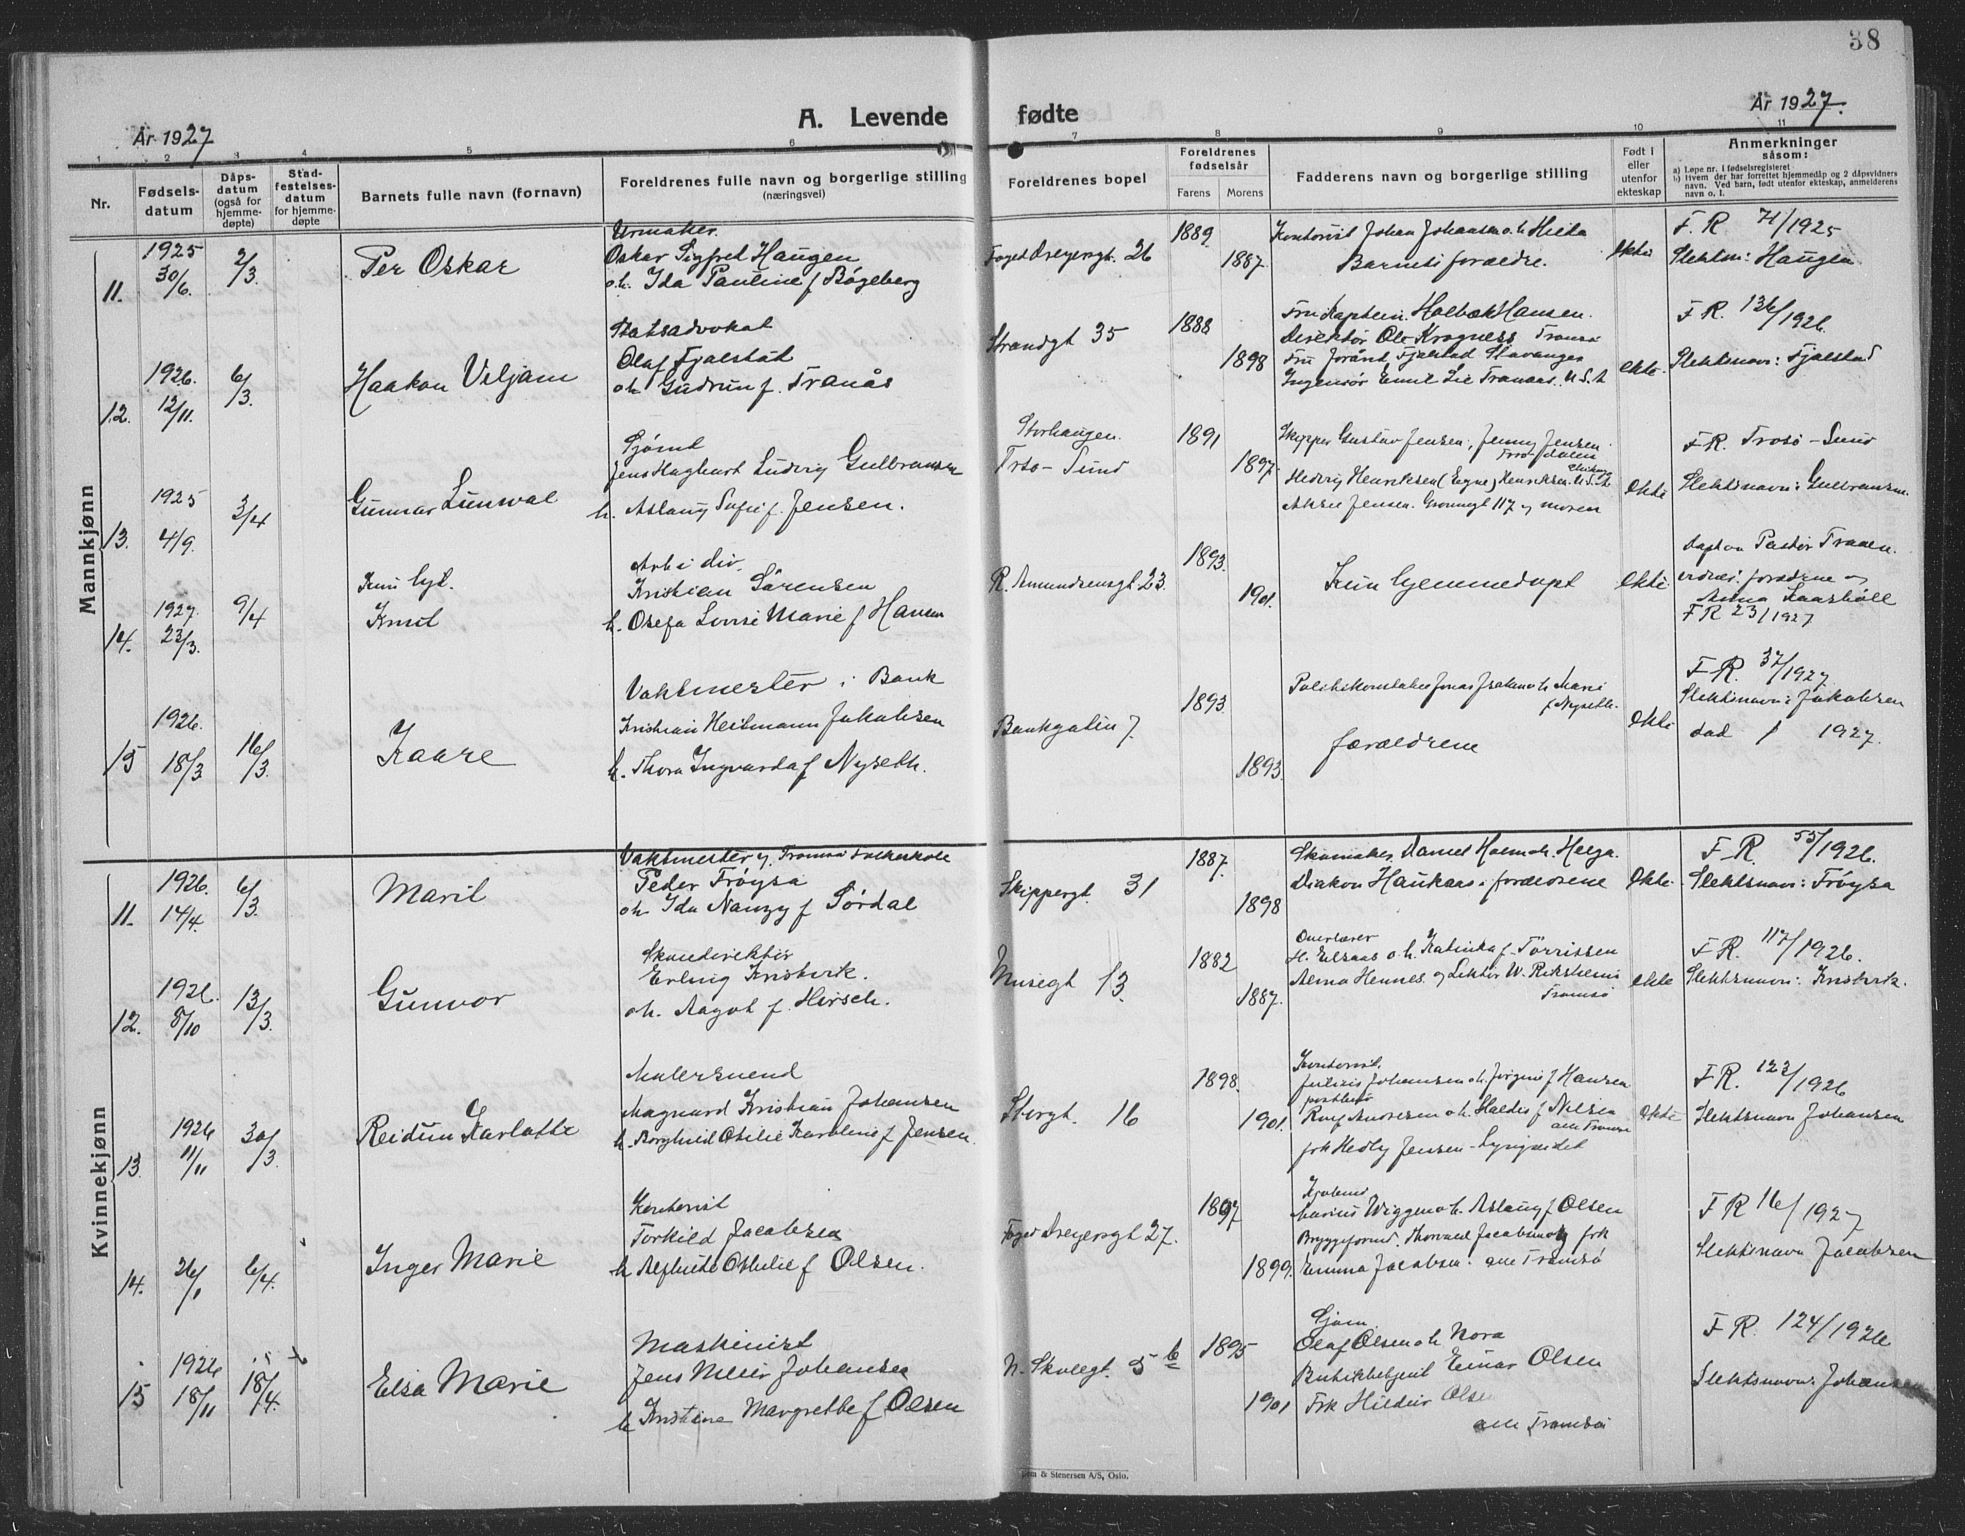 38
År 1927
A. Levende fødte
År 1927.
1 2 3 4 5 6 7 8 9 10 11
Nr.
Fødsels-
datum
Dåps-
datum
(også for
hjemme-
døpte)
Stad-
festelses-
datum
for hjemme-
døpte
Barnets fulle navn (fornavn)
Foreldrenes fulle navn og borgerlige stilling
(næringsvei)
Foreldrenes bopel
Foreldrenes
fødselsår
Farens Morens
Fadderens navn og borgerlige stilling
Født i
eller
utenfor
ekteskap
Anmerkninger
såsom:
a) Løpe nr. i fødselsregisteret.
b) Hvem der har forrettet hjemmedåp og 2 dåpsvidners
navn. Ved barn, født utenfor ekteskap, anmelderens
navn o. l.
Mannkjønn
11. 1925 30/6. 2/3.
Per Oskar
Urmaker.
Oskar Sigfred Haugen
o.h. Ida Pauline f. Bøgeberg
Foged Dreyersgt. 26
1889 1887.
Kontorist Johan Johansen o.h.
Barnets forældre.
Ekte
F. R. 71/1925
Slektsn: Haugen
12. 1926. 12/11. 6/3.
Haakon Viljam
Statsadvokat
Olaf Fjalstad
o.h. Gudrun f. Tranås
Strandgt 35
1888 1898
Fru Kaptein Holbæk Hansen.
Direktør Ole Kragness Tromsø
Fru Fjalstad Stavanger
Ingeniør Emil Lie Tranaas. U.S.A
ekte.
F. R. 136/1926.
Slektsnavn: Fjalstad
13. 1925 4/9. 3/4
Gunnar Lunwal
Sjømt
Jens Haghart Ludvig Gulbransen
h. Aslaug Sofie f. Jensen.
Storhaugen.
Trsø-Sund
1891 1897.
Skipper Gustav Jensen, Jenny Jensen
Hedvig Henriksen Henriksen U.S.A
Jensen. Grønnegt 117 og moren
Ekte
F.R. Trosø-Sund
Slektsnavn: Gulbransen.
14. 1927. 23/3. 9/4
Knut
Arb i div.
Kristian Sørensen
h. Osefa Lovise Marie f Hansen
R. Amundsensgt 23.
1893. 1901.
Kun hjemmedøpt
Ekte
døpt av Pastor Traaen.
vidner: forældrene og
Anna
F R 23/1927
15 1926. 18/3 16/3.
Kaare
Vaktmester i Bank
Kristian Heitmann Jakobsen
h. Thora Ingvarda f Nyseth.
Bankgaten 7.
1893. 1893.
Politikonstabel Jonas o.h. Marie
f Nyseth.
forældrene
Ekte
F.R. 37/1927
Slektsnavn: Jakobsen
død / 1927.
Kvinnekjønn
11. 1926. 14/4. 6/3.
Marit
Vaktmester v. Tromsø Folkeskole
Peder Frøysa
o.h. Ida Nanzy f Sørdal
Skippergt. 31
1887. 1898
Skomaker Daniel Holm o.h. Helga.
Diakon Haukaas. forældrene
Ekte.
F. R. 55/1926.
Slektsnavn: Frøysa
12. 1926. 8/10 13/3.
Gunvor
Skoledirektør
Erling Kristvik.
o.h. Aagot f. Hirsch.
Musegt 13.
1882 1887.
Overlærer
H. Eilraas o.h. Katinka f. Tørrissen
Alma Hennes og Lektor W. Rikstheim
Tromsø
ekte
F. R. 117/1926.
Slektsnavn: Kristvik.
13. 1926 11/11 30/3.
Reidun Karlotte
Malersvend
Magnard Kristian Johansen
h. Borghild Otilie Karoline f Jensen.
Storgt. 16
1898. 1901.
Kontorist.
Julius Johansen o.h. Jørgine f Hansen
o.h. Haldis f Nilsen
alle Tromsø
frk Hedly Jensen - Lyngseidet
Ekte
F.R. 123/1926
Slektsnavn Johansen
14. 26/1 6/4.
Inger Marie
Kontorist
Torkild Jacobsen
h Alfhild Othilie f Olsen.
Foged Dreyersgt 27.
1897 1899.
Marius Wiggen o.h. Aslaug f Olsen
Bryggeformd. Thorvald Jacobsen og frk
Emma Jacobsen. alle Tromsø
F R 16/1927
Slektsnavn Jacobsen
15 1926 18/11 18/4.
Elsa Marie
Maskinist
Jens Meier Johansen
h Kristine Margrethe f Olsen
N. Skolegt. 5 b
1895 1901
Sjøm.
Olaf Olsen o.h Nora
Butikkbetjent Einar Olsen
Frk Hildur Olsen
alle Tromsø
F. R. 124/1926
Slektsnavn: Johansen
& Stenersen A/S, Oslo.